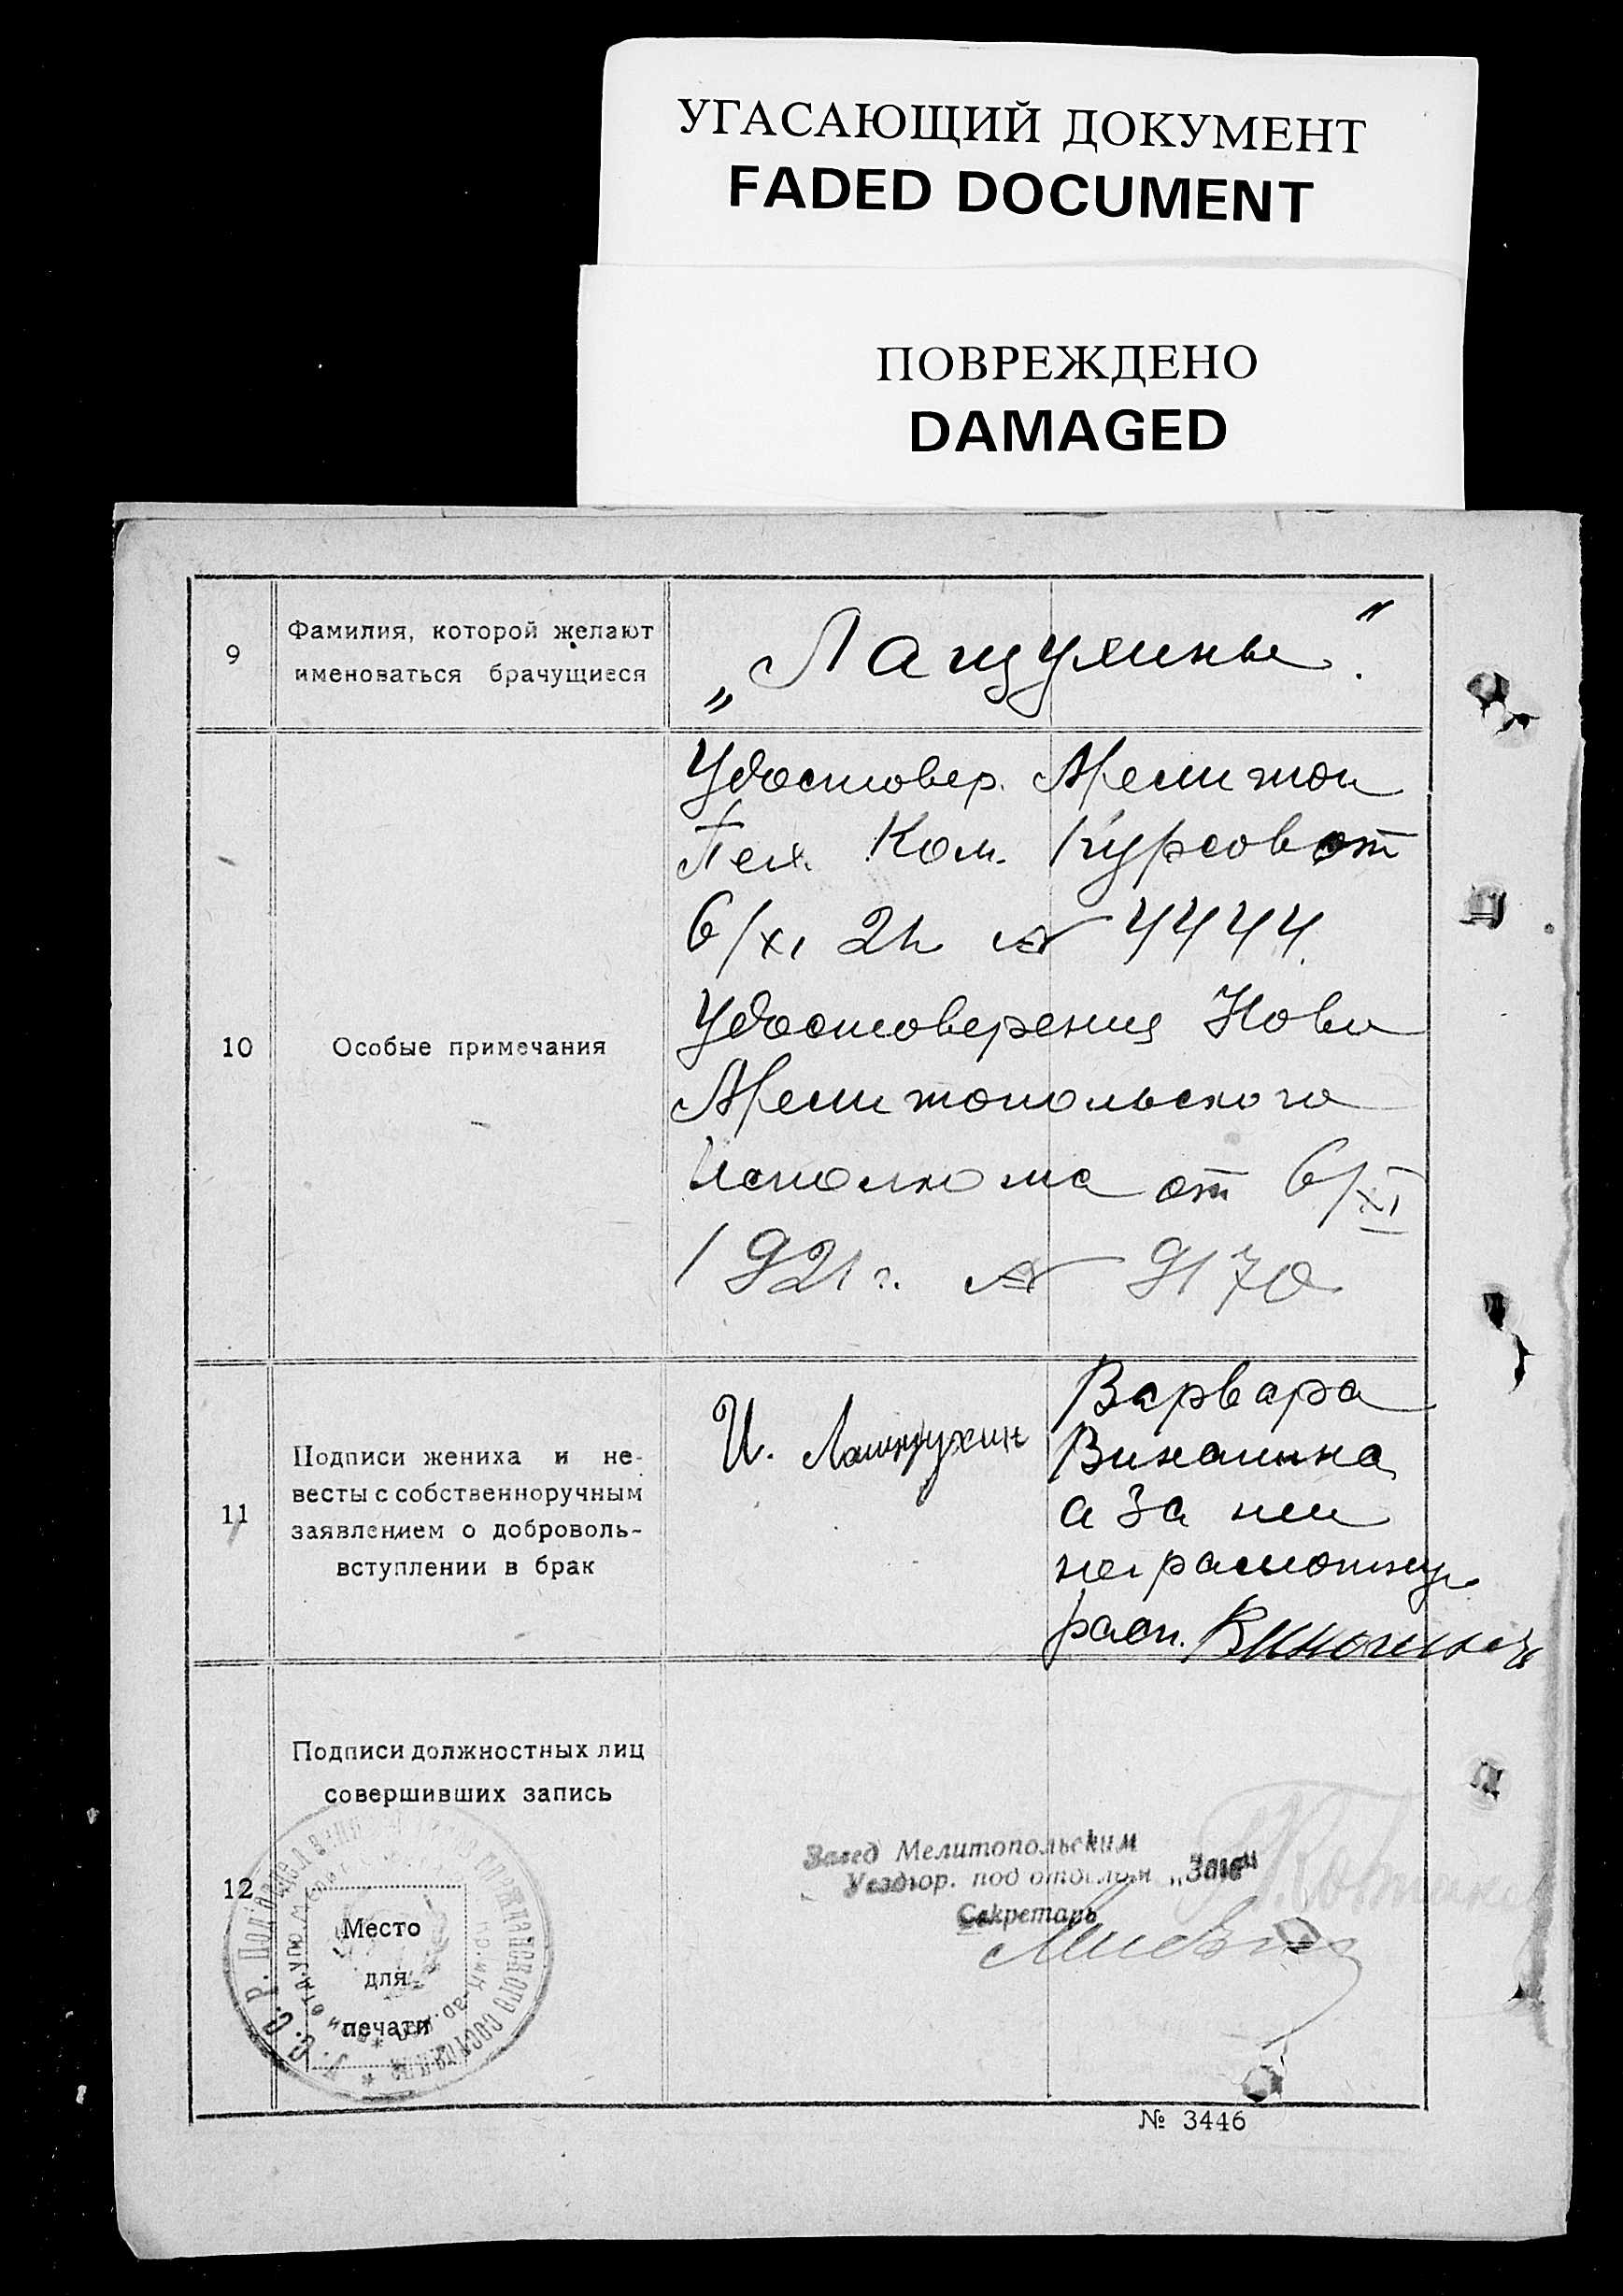 УГАСАЮЩИЙ ДОКУМЕНТ
FADED DOCUMENT
ПОВРЕЖДЕНО
DAMAGED
9
Фамилия, которой желают
именоваться брачущиеся
„Лащухины”.
10
Особые примечания
Удостовер. Мелитоп
Пех. Ком. Курсов от
6/XI 21г № 4444.
Удостоверения Ново
Мелитопольского
Исполкома от 6/XI
1921 г. № 9170
11
Подписи жениха и не-
весты с собственноручным
заявлением о доброволь-
вступлении в брак
И. Лащухин
Варвара
а за нее
неграмотную
расп.
12
Подписи должностных лиц
совершивших запись
Место
для
печати
Завед Мелитопольским
Уездгор. под отделом „Загс”
Секретарь
№ 3446